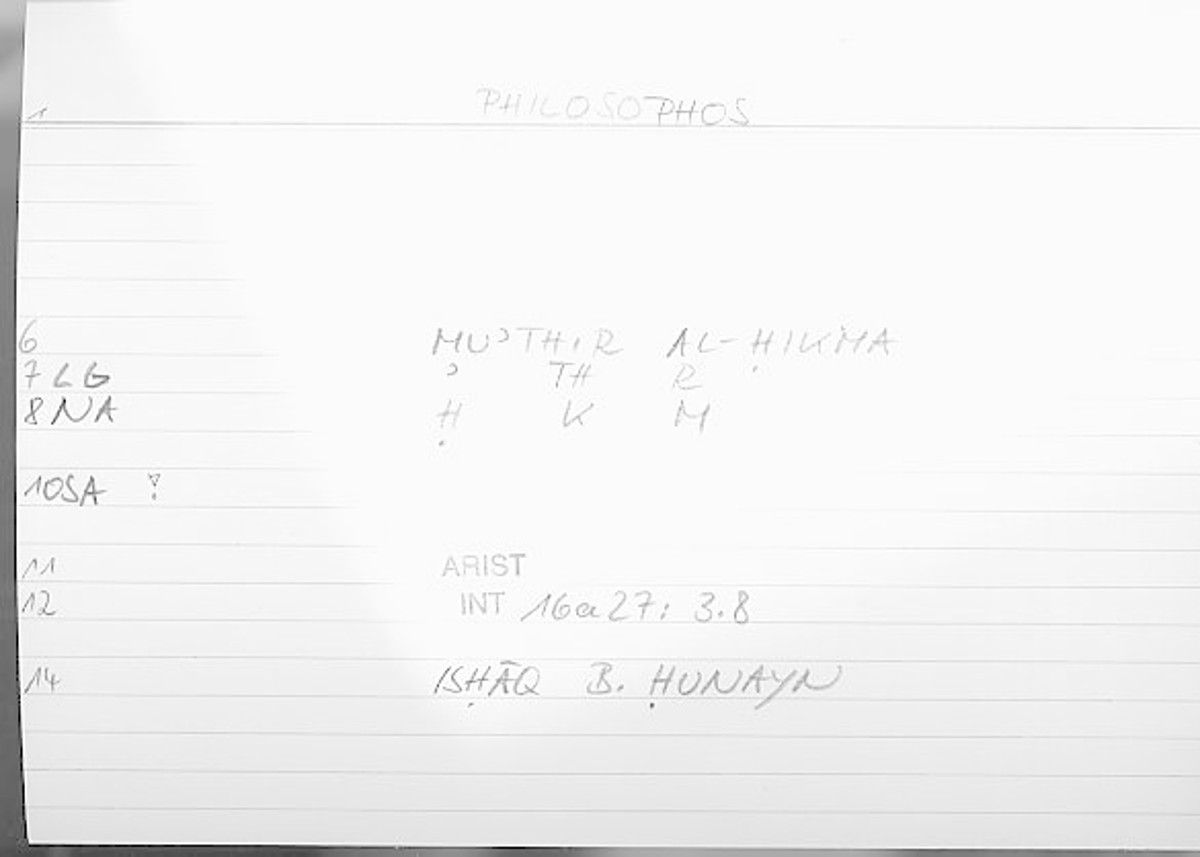 1 PHILOSOPHOS
6 MUʾTHIR AL-ḤIKMA
7 LG ʾ TH R
8 NA Ḥ K M
10SA
11 ARIST
12 INT 16a27: 3.8
14 ISḤĀQ B. ḤUNAYN